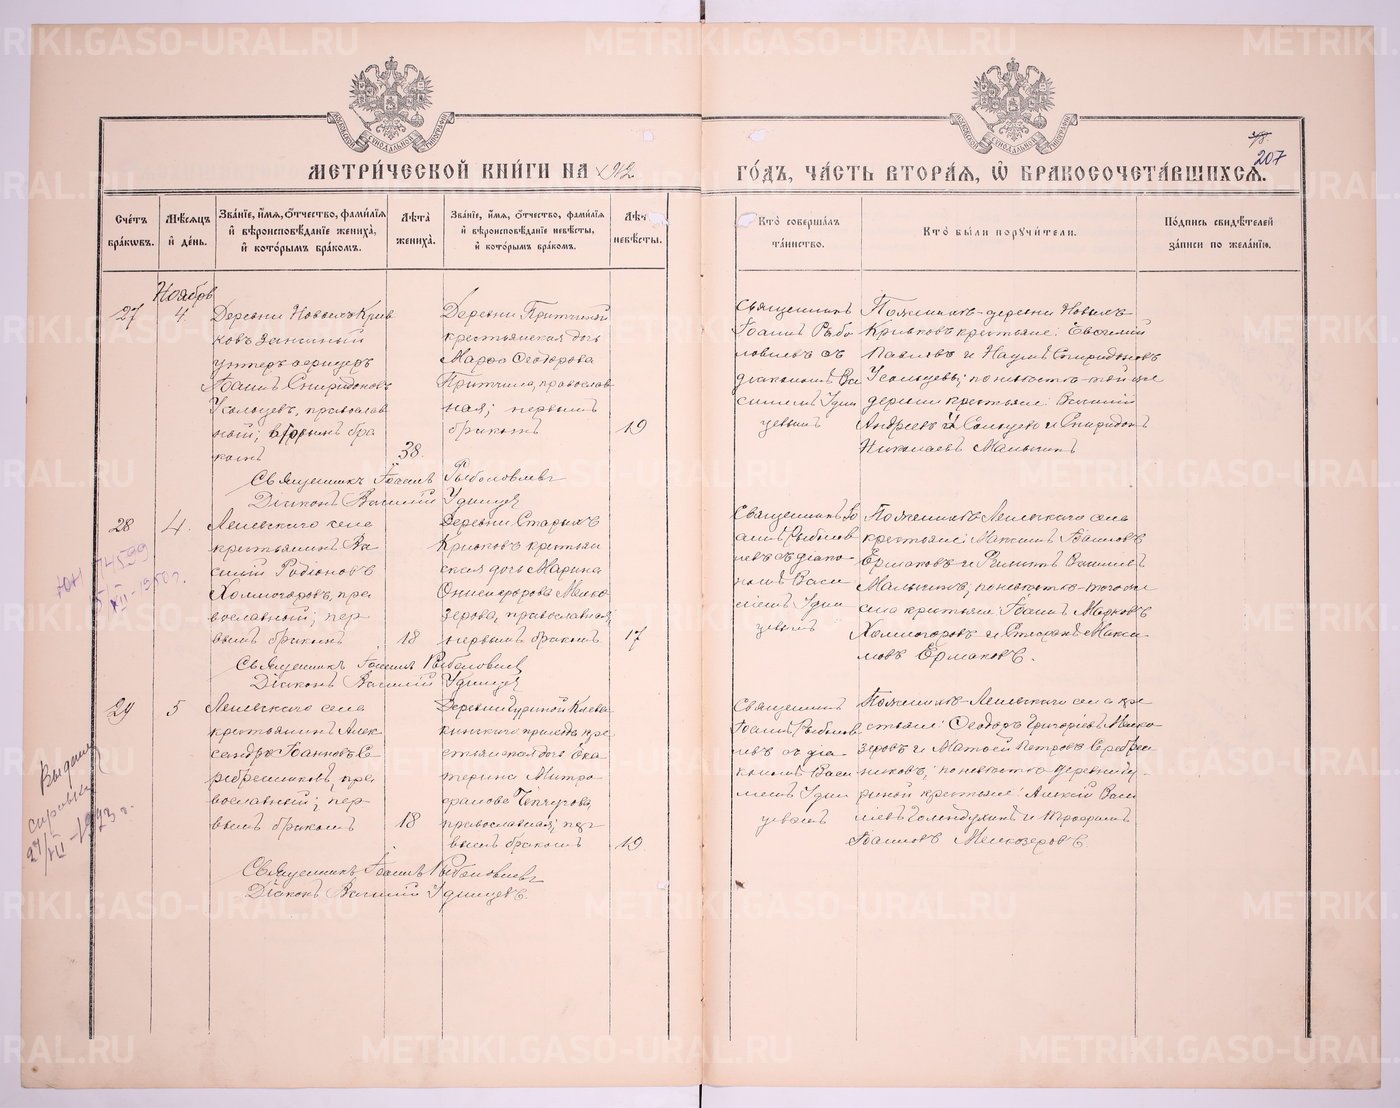 МЕТРИЧЕСКОЙ КНИГИ НА 1912
ГОДЪ, ЧАСТЬ ВТОРАЯ, Ѡ БРАКОСОЧЕТАВШИХСЯ.
207
Счётъ браковъ.
Мѣсяцъ и день.
Званіе, имя, отчество, фамилія и вѣроисповѣданіе жениха, и которымъ бракомъ.
Лѣта жениха.
Званіе, имя, отчество, фамилія и вѣроисповѣданіе невѣсты, и которымъ бракомъ.
Лѣт невѣсты.
Кто совершалъ таинство.
Кто были поручители.
Подпись свидѣтелей записи по желанію.
Ноябрь
27
4
Деревни Новыхъ Крив
ковъ запасный
унтеръ-офицеръ
Іоаннъ Спиридоновъ
Усольцевъ, православ
ный; вторымъ бра
комъ
38.
Деревни Притчиной
крестьянская дочь
Марфа Ѳеодорова
Притчина, православ
ная; первымъ
бракомъ
19
Священникъ
Іоаннъ Рыбо
ловлевъ съ
діакономъ Ва
силіемъ Удин
цевымъ
Деревни Новыхъ
крестьяне: Евгеній
Павловъ и Наумъ Спиридоновъ
Усольцевы; по невѣстѣ-той же
деревни крестьяне: Василій
Андреевъ Усольцевъ и Спиридонъ
Николаевъ Малыгинъ
Священникъ Іоаннъ Рыболовлевъ
Діаконъ Василій Удинцев
28
4.
села
крестьянинъ Ва
силій Родіоновъ
Холмогоровъ, пра
вославный; пер
вымъ бракомъ
18
Деревни Старыхъ
крестьян
ская дочь Марина
Онисифорова Мелко
зерова, православная,
первымъ бракомъ
17
Священникъ Іо
аннъ Рыболов
левъ съ діако
номъ Васи
ліемъ Удин
цевымъ
села
крестьяне: Максимъ Іоанновъ
Ермаковъ и Филиппъ Васильевъ
Малыгинъ; по невѣстѣ-того же
села крестьяне Іоаннъ Марковъ
Холмогоровъ и Стефанъ Макси
мовъ Ермаковъ.
Священникъ Іоаннъ Рыболовлев
Діаконъ Василій Удинцев
29
5
села
крестьянинъ Алек
сандръ Іоанновъ Се
ребрениковъ, пра
вославный; пер
вымъ бракомъ
18
Деревни Гуриной Клева
кинскаго прихода кре
стьянская дочь Ека
терина Митро
фанова Чепчугова,
православная; пер
вымъ бракомъ
19.
Священникъ
Іоаннъ Рыболов
левъ съ діа
кономъ Васи
ліемъ Удин
цевымъ
села кре
стьяне: Ѳеодоръ Григоріевъ Мелко
зеровъ и Матѳій Петровъ Серебре
никовъ; по невѣстѣ-деревни Гу
риной крестьяне: Алексій Васи
льевъ Голендухинъ и
Іоанновъ Мелкозеровъ.
Священникъ Іоаннъ Рыболовлевъ
Діаконъ Василій Удинцевъ.
74599
XII-1950 г.
Выдана
справка
27/III-1973 г.
METRIKI.GASO-URAL.RU